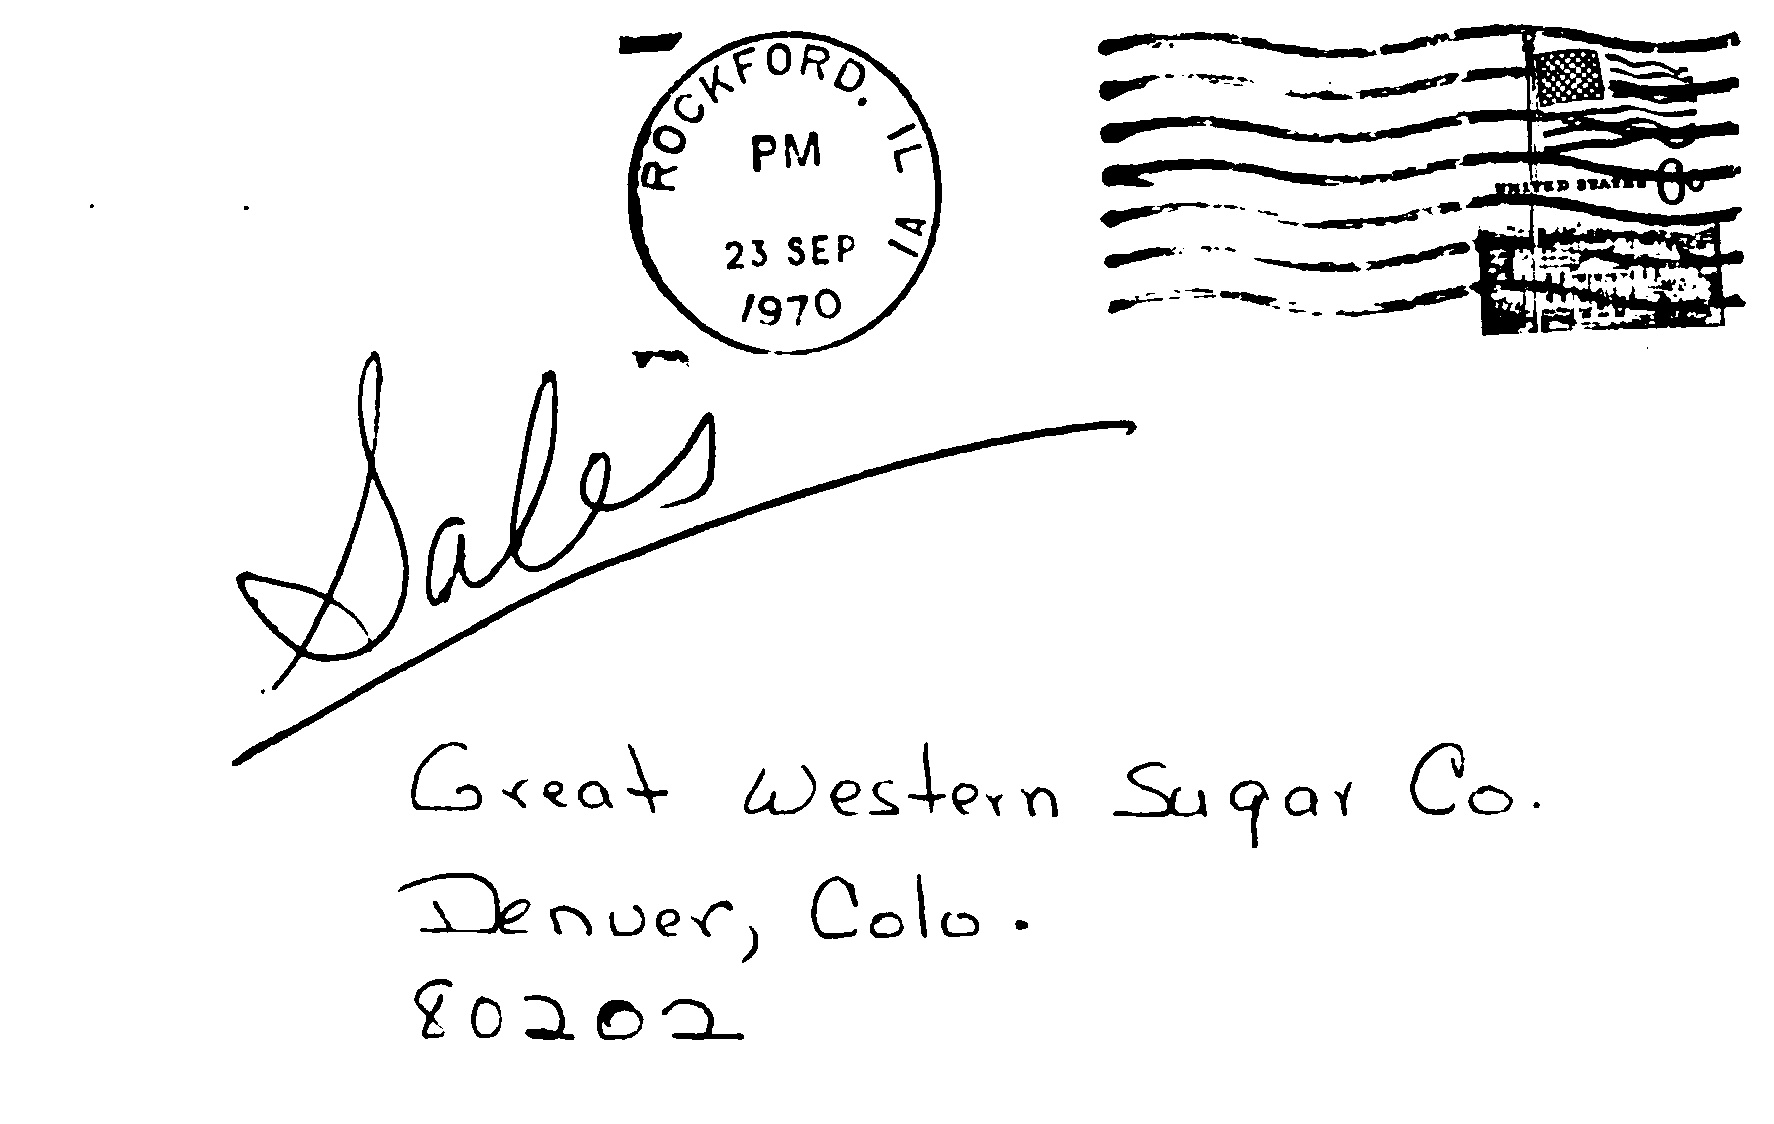 ROCKFORD. IL
PM
1A
23 SEP
1970
UNITED STATES 6c
Sales
Great Western Sugar Co.
Denver, Colo.
80202